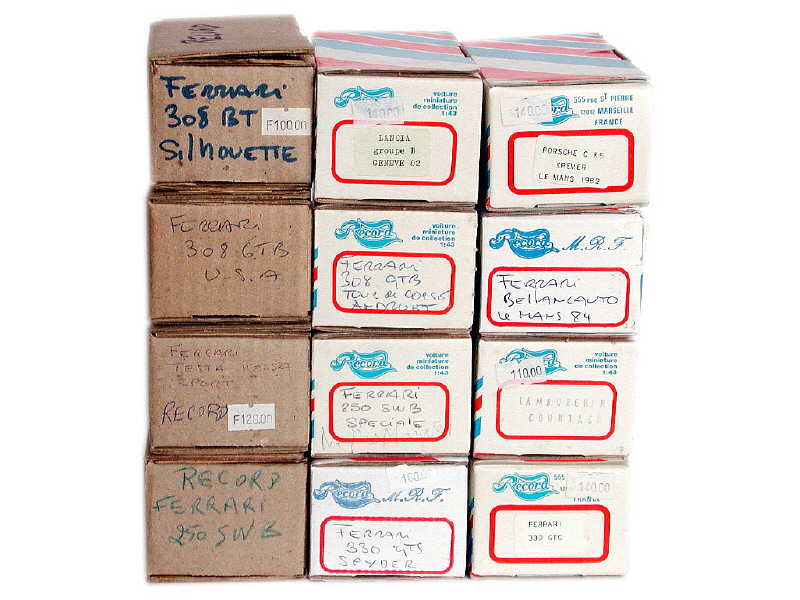 RECORD
FERRARI
308 BT
SILHOUETTE
F100.00
FERRARI
308 GTB
U.S.A
FERRARI
TESTA ROSSA
SPORT
RECORD
F120.00
RECORD
FERRARI
250 SWB
Record
voiture
miniature
de collection
1:43
140.00
LANCIA
groupe B
GENEVE 82
Record
voiture
miniature
de collection
1:43
FERRARI
308 GTB
TOUR de CORSE
ANDRUET
Record
voiture
miniature
de collection
1:43
FERRARI
250 SWB
SPECIALE
Record M.R.F.
160.0
FERRARI
330 GTS
SPYDER
Record
555 rue ST PIERRE
13012 MARSEILLE
FRANCE
140.00
PORSCHE C K5
KREMER
LE MANS 1982
Record M.R.F.
FERRARI
BELLANCAUTO
Le MANS 84
Record
voiture
miniature
de collection
1:43
110.00
LAMBORGHIN
COUNTACH
Record
555
140.00
FERRARI
330 GTC